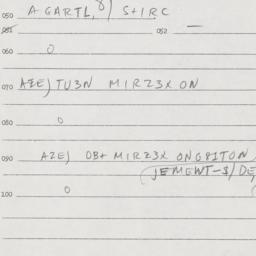 050 A GARTL, 8) S+IRC
051 052 —
060 0
070 AZE) TU3N MIRZ3X ON
080 0
090 AZE) OB+ MIRZ3X ONG8ITON
(JEMGWT-$/DE,
100 0